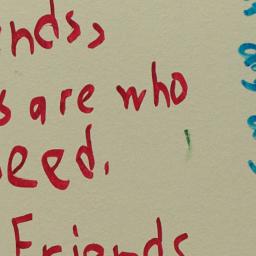 nds,
s are who
eed.
Friends